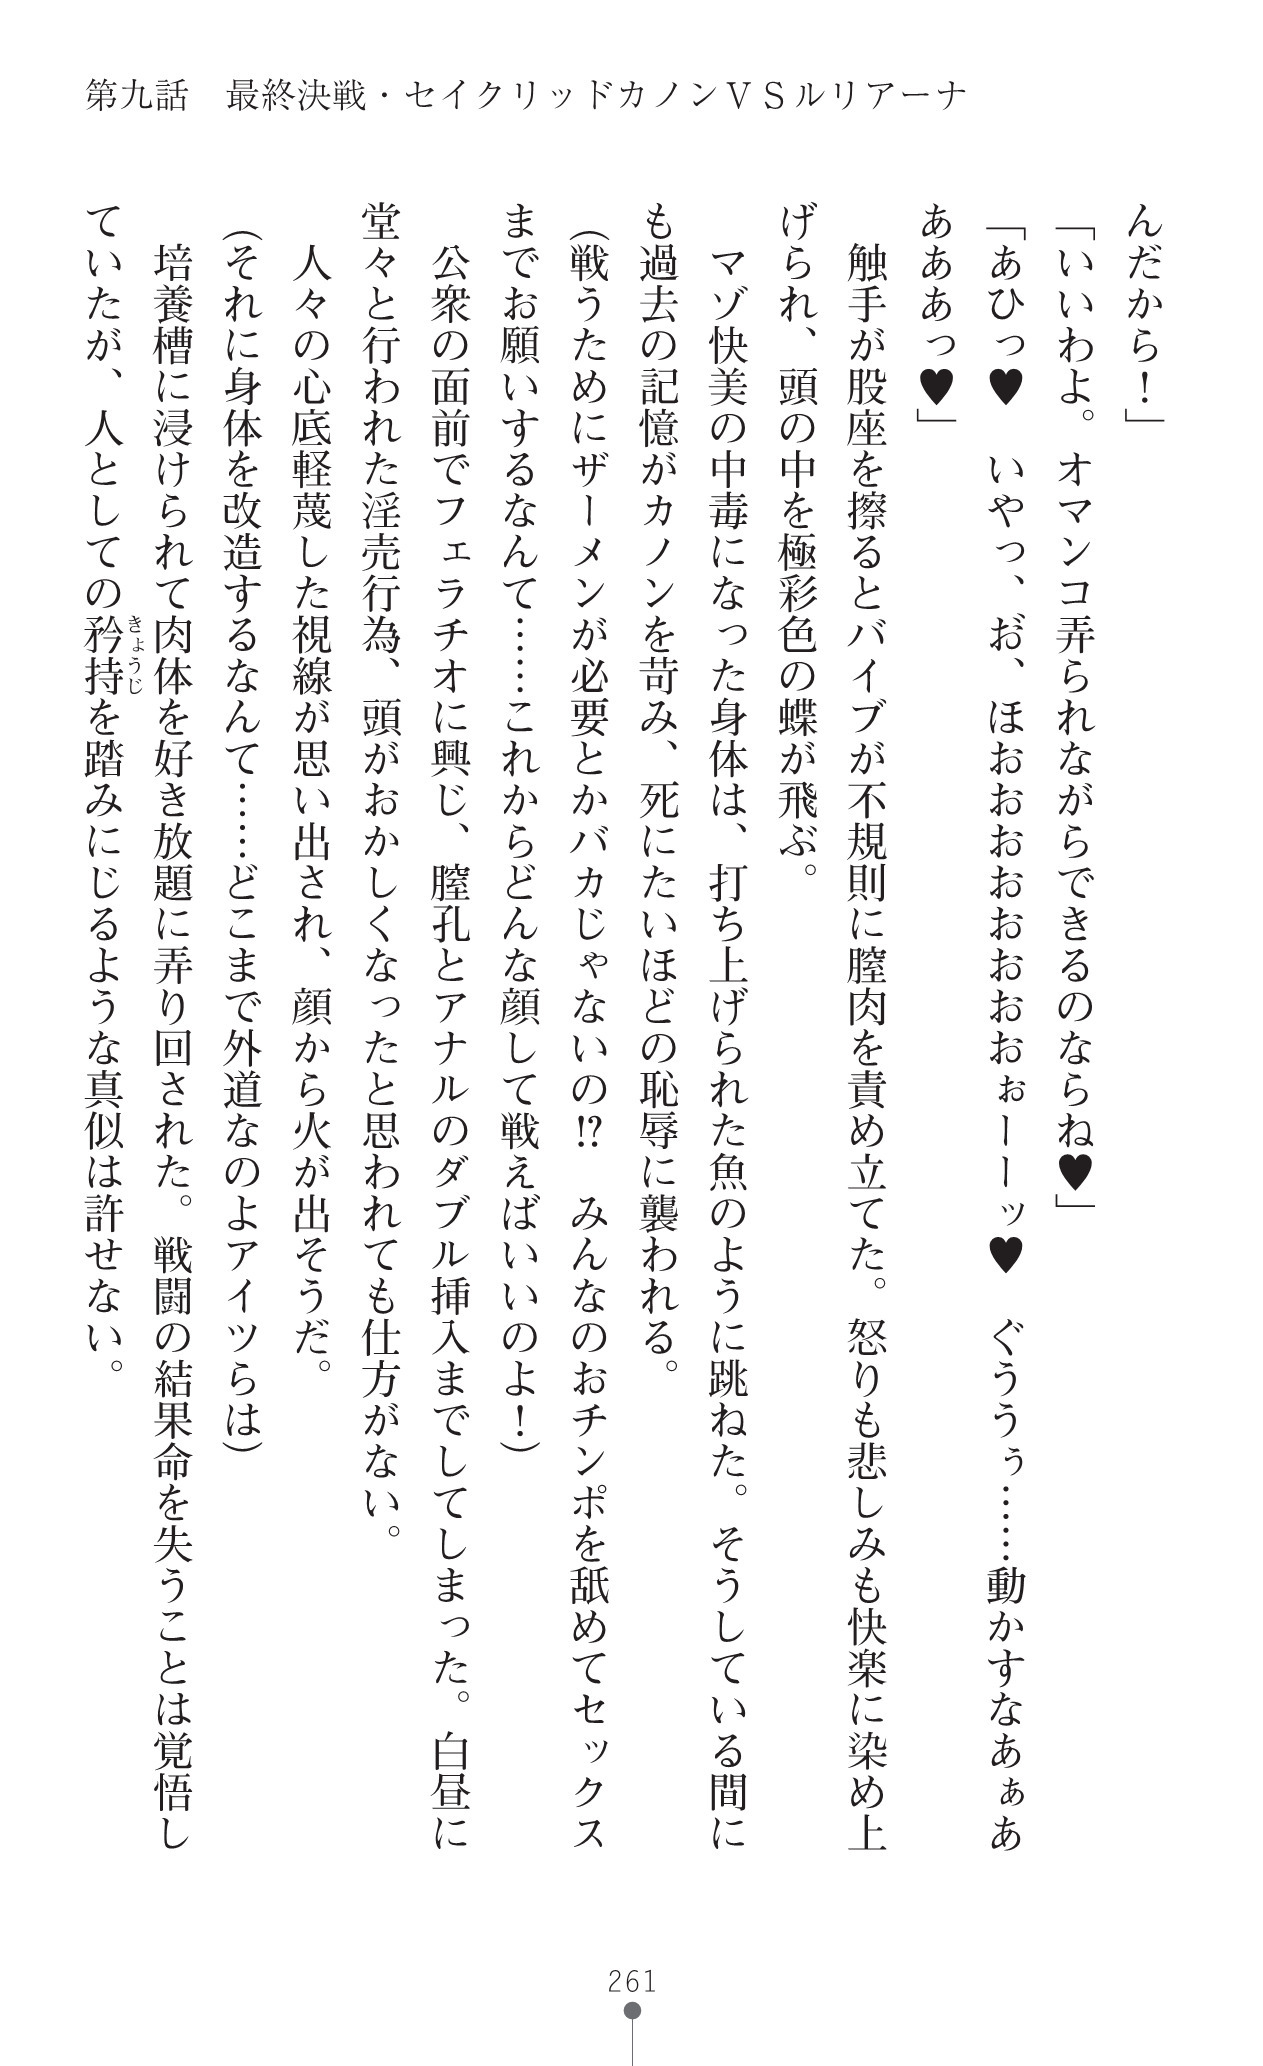 第九話　最終決戦・セイクリッドカノンＶＳルリアーナ
んだから！」
「いいわよ。オマンコ弄られながらできるのならね♥」
「あひっ♥　いやっ、お゙、ほおおおおおおおぉーーッ♥　ぐううぅ……動かすなあぁあ
あああっ♥」
　触手が股座を擦るとバイブが不規則に膣肉を責め立てた。怒りも悲しみも快楽に染め上
げられ、頭の中を極彩色の蝶が飛ぶ。
　マゾ快美の中毒になった身体は、打ち上げられた魚のように跳ねた。そうしている間に
も過去の記憶がカノンを苛み、死にたいほどの恥辱に襲われる。
（戦うためにザーメンが必要とかバカじゃないの⁉　みんなのおチンポを舐めてセックス
までお願いするなんて……これからどんな顔して戦えばいいのよ！）
　公衆の面前でフェラチオに興じ、膣孔とアナルのダブル挿入までしてしまった。白昼に
堂々と行われた淫売行為、頭がおかしくなったと思われても仕方がない。
　人々の心底軽蔑した視線が思い出され、顔から火が出そうだ。
（それに身体を改造するなんて……どこまで外道なのよアイツらは）
　培養槽に浸けられて肉体を好き放題に弄り回された。戦闘の結果命を失うことは覚悟し
ていたが、人としての矜持を踏みにじるような真似は許せない。
きょうじ
261